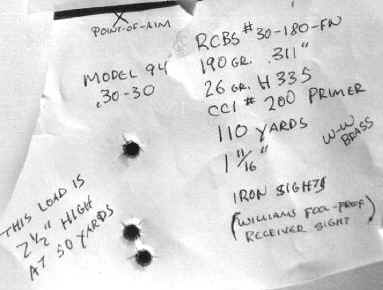 POINT-OF-AIM
MODEL 94
.30-30
RCBS #30-180-FN
190 GR. .311"
26 GR. H335
CCI # 200 PRIMER
110 YARDS
W-W BRASS
1 11/16"
IRON SIGHTS
(WILLIAMS FOOL-PROOF
RECEIVER SIGHT)
THIS LOAD IS
2 1/2" HIGH
AT 50 YARDS